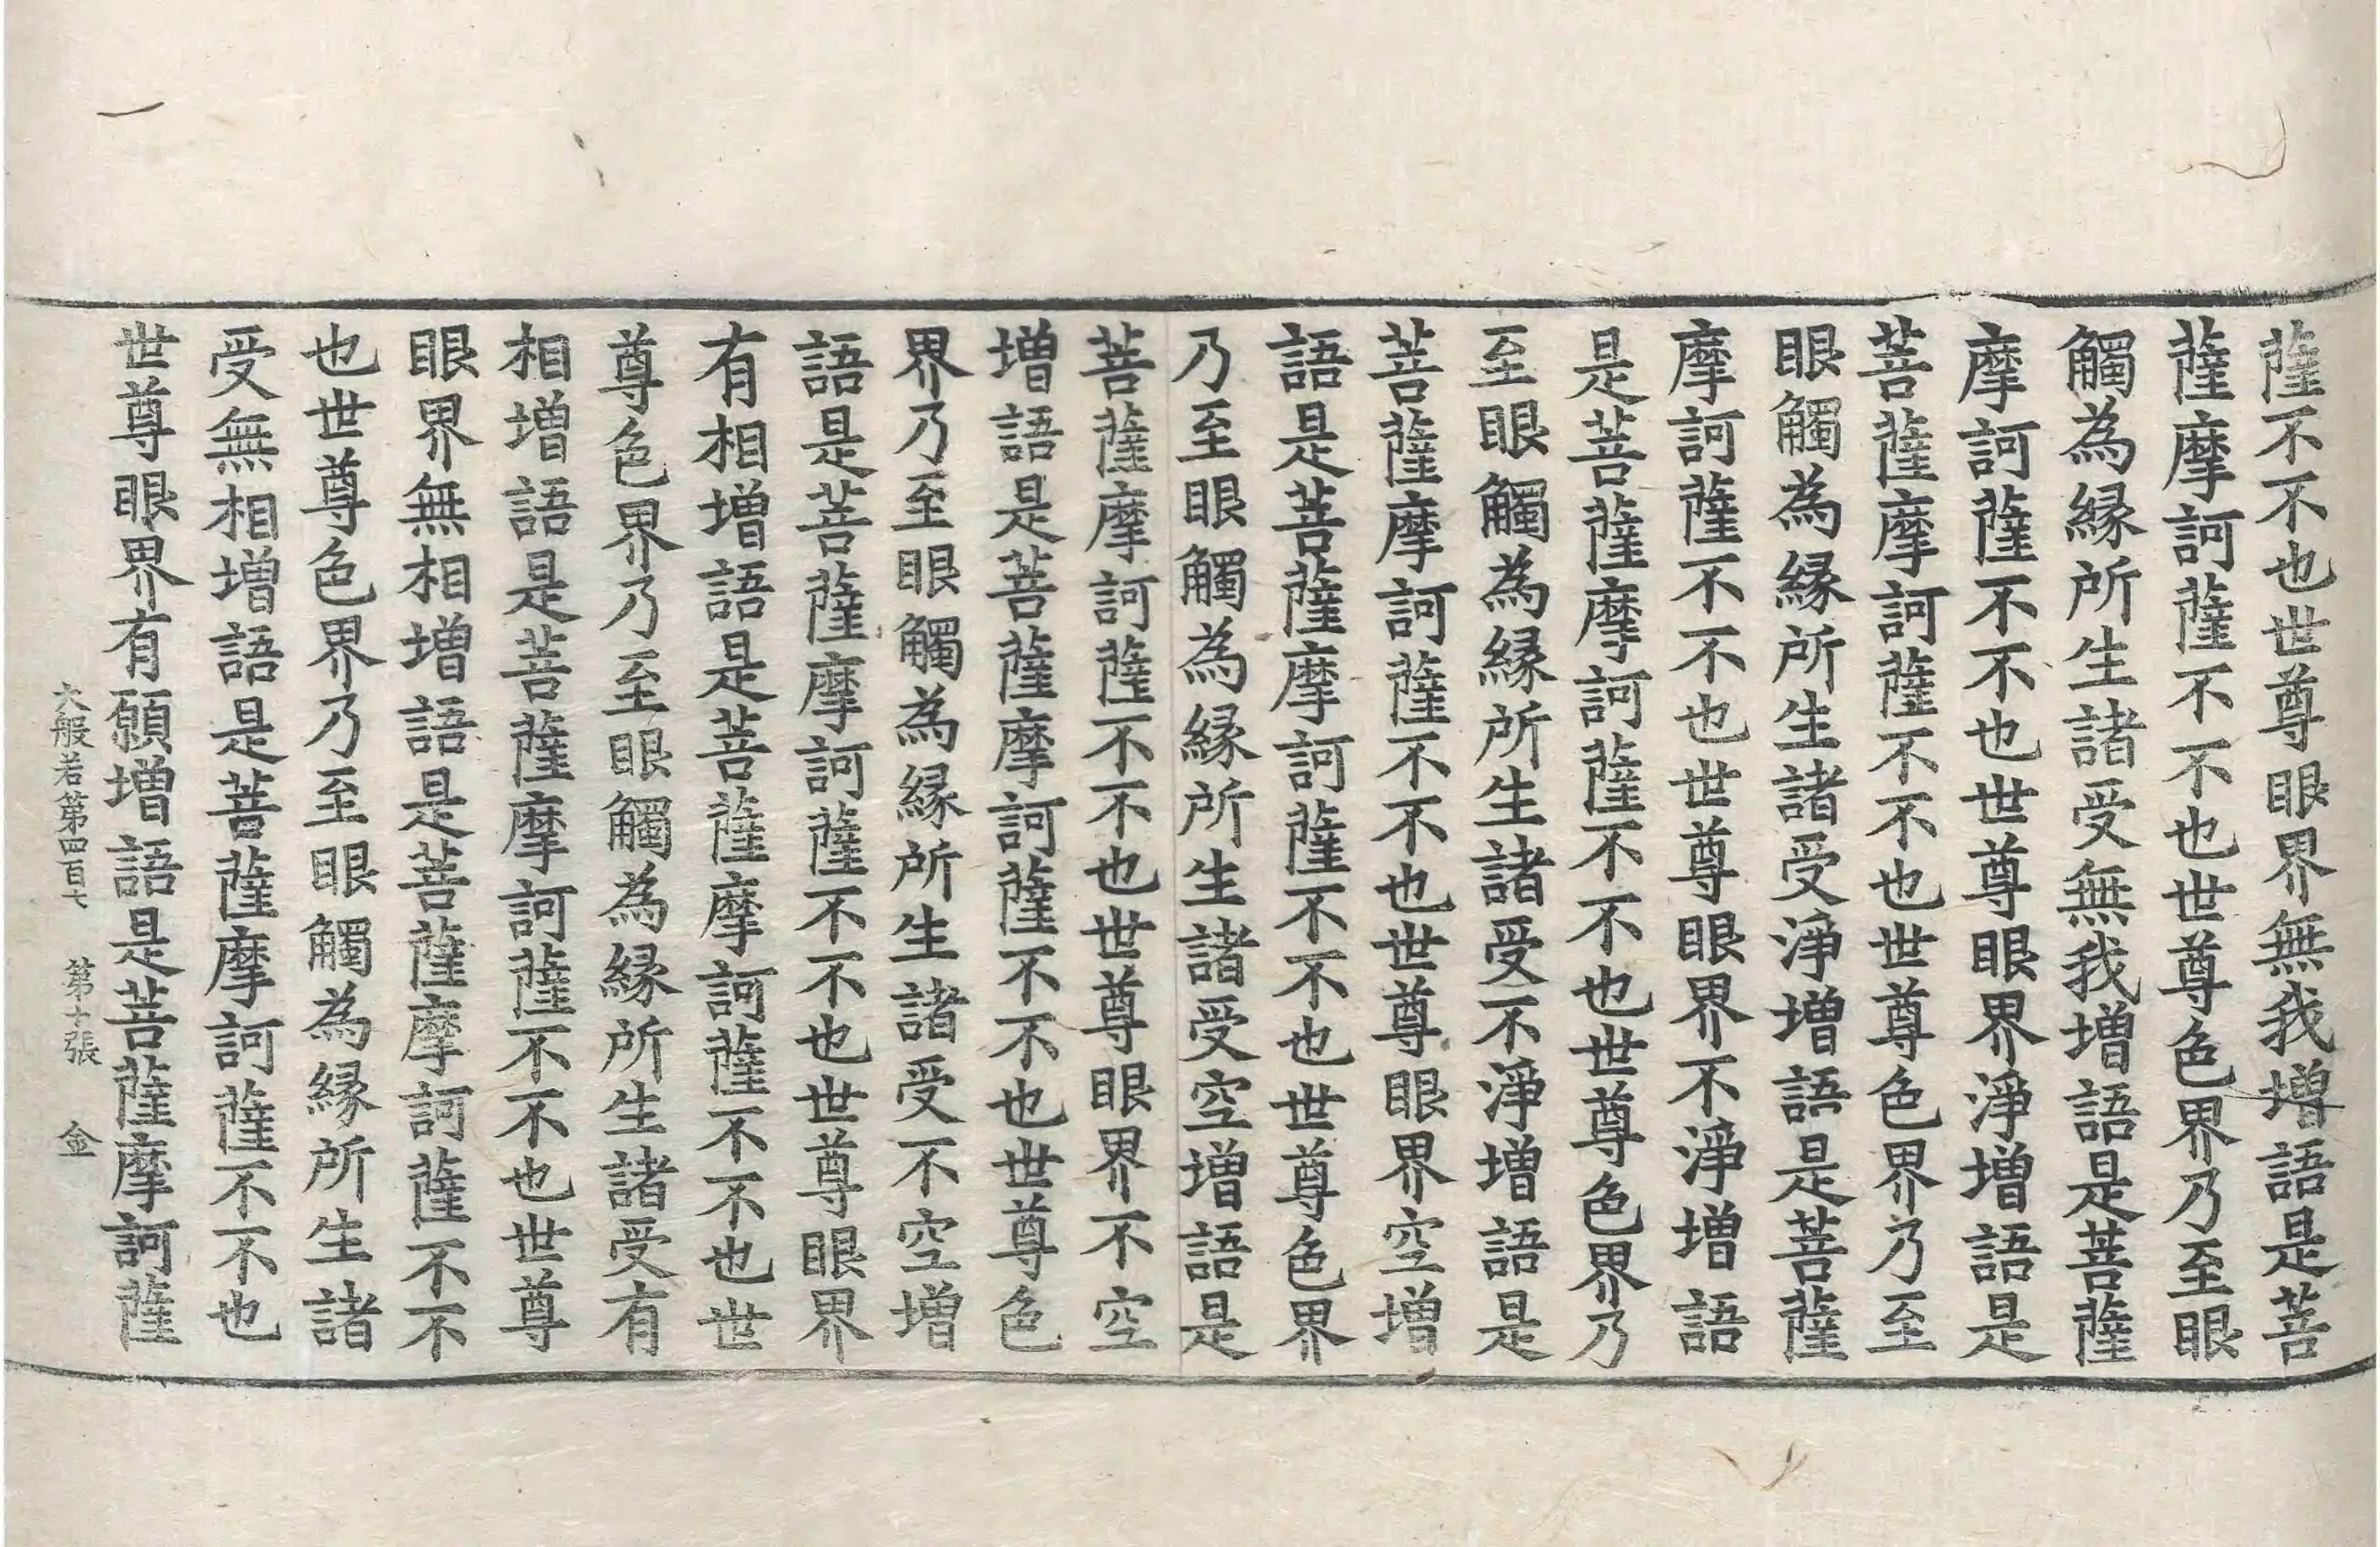 薩不不也世尊眼界無我增語是菩
薩摩訶薩不不也世尊色界乃至眼
觸為緣所生諸受無我增語是菩薩
摩訶薩不不也世尊眼界淨增語是
菩薩摩訶薩不不也世尊色界乃至
眼觸為緣所生諸受淨增語是菩薩
摩訶薩不不也世尊眼界不淨增語
是菩薩摩訶薩不不也世尊色界乃
至眼觸為緣所生諸受不淨增語是
菩薩摩訶薩不不也世尊眼界空增
語是菩薩摩訶薩不不也世尊色界
乃至眼觸為緣所生諸受空增語是
菩薩摩訶薩不不也世尊眼界不空
增語是菩薩摩訶薩不不也世尊色
界乃至眼觸為緣所生諸受不空增
語是菩薩摩訶薩不不也世尊眼界
有相增語是菩薩摩訶薩不不也世
尊色界乃至眼觸為緣所生諸受有
相增語是菩薩摩訶薩不不也世尊
眼界無相增語是菩薩摩訶薩不不
也世尊色界乃至眼觸為緣所生諸
受無相增語是菩薩摩訶薩不不也
世尊眼界有願增語是菩薩摩訶薩
大般若第四百七 第十張 金